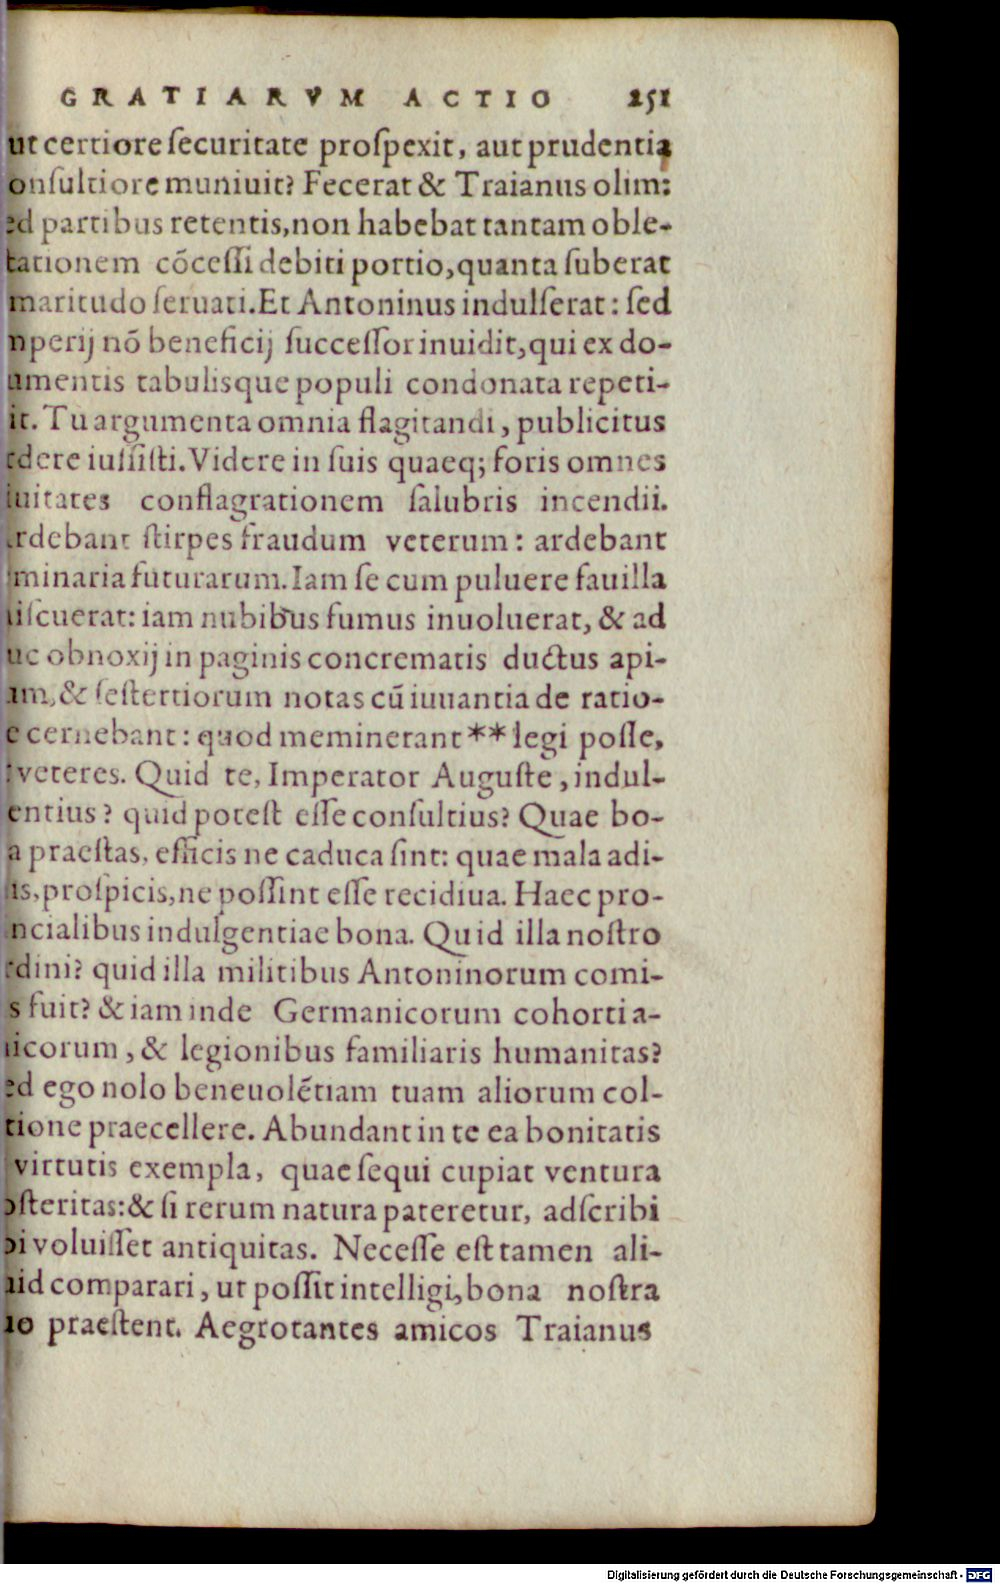 GRATIARVM ACTIO 251
ut certiore ſecuritate proſpexit, aut prudentia
onſultiore muniuit? Fecerat & Traianus olim:
ed partibus retentis, non habebat tantam oble-
tationem cōceſſi debiti portio, quanta ſuberat
maritudo ſeruati. Et Antoninus indulſerat: ſed
nperij nō beneficij ſucceſſor inuidit, qui ex do-
umentis tabulisque populi condonata repeti-
it. Tu argumenta omnia flagitandi, publicitus
rdere iuſſiſti. Videre in ſuis quaeq; foris omnes
iuitates conflagrationem ſalubris incendii.
rdebant ſtirpes fraudum veterum: ardebant
minaria futurarum. Iam ſe cum puluere fauilla
iſcuerat: iam nubibus fumus inuoluerat, & ad
uc obnoxij in paginis concrematis ductus api-
um, & ſeſtertiorum notas cū iuuantia de ratio-
e cernebant: quod meminerant ** legi poſſe,
veteres. Quid te, Imperator Auguſte, indul-
entius? quid poteſt eſſe conſultius? Quae bo-
a praeſtas, efficis ne caduca ſint: quae mala adi-
is, proſpicis, ne poſſint eſſe recidiua. Haec pro-
ncialibus indulgentiae bona. Quid illa noſtro
rdini? quid illa militibus Antoninorum comi-
s fuit? & iam inde Germanicorum cohorti a-
icorum, & legionibus familiaris humanitas?
ed ego nolo beneuolētiam tuam aliorum col-
tione praecellere. Abundant in te ea bonitatis
virtutis exempla, quae ſequi cupiat ventura
oſteritas: & ſi rerum natura pateretur, adſcribi
bi voluiſſet antiquitas. Neceſſe eſt tamen ali-
uid comparari, ut poſſit intelligi, bona noſtra
uo praeſtent. Aegrotantes amicos Traianus
Digitalisierung gefördert durch die Deutsche Forschungsgemeinschaft - DFG